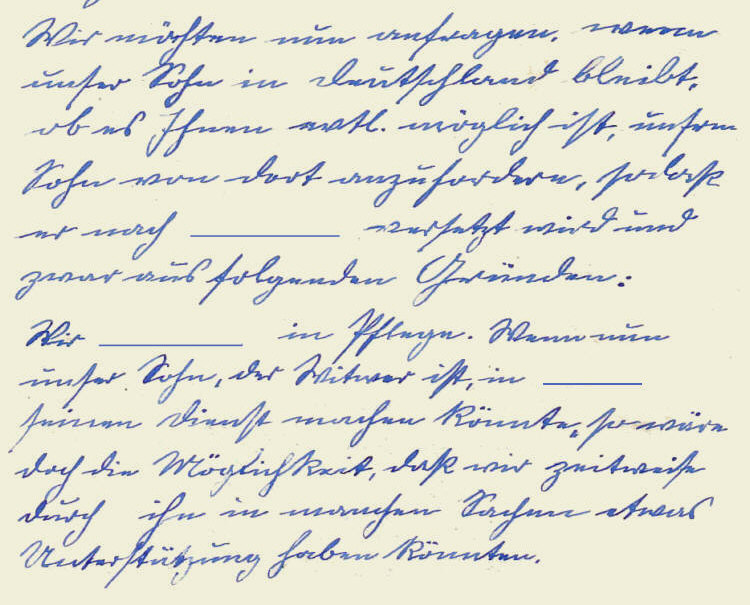 Wir möchten nun anfragen, wenn
unser Sohn in Deutschland bleibt,
ob es Ihnen evtl. möglich ist, unsern
Sohn von dort anzufordern, sodaß
er nach versetzt wird und
zwar aus folgenden Gründen:
Wir in Pflege. Wenn nun
unser Sohn, der Witwer ist, in
seinen Dienst machen könnte, so wäre
doch die Möglichkeit, daß wir zeitweise
durch ihn in manchen Sachen etwas
Unterstützung haben könnten.